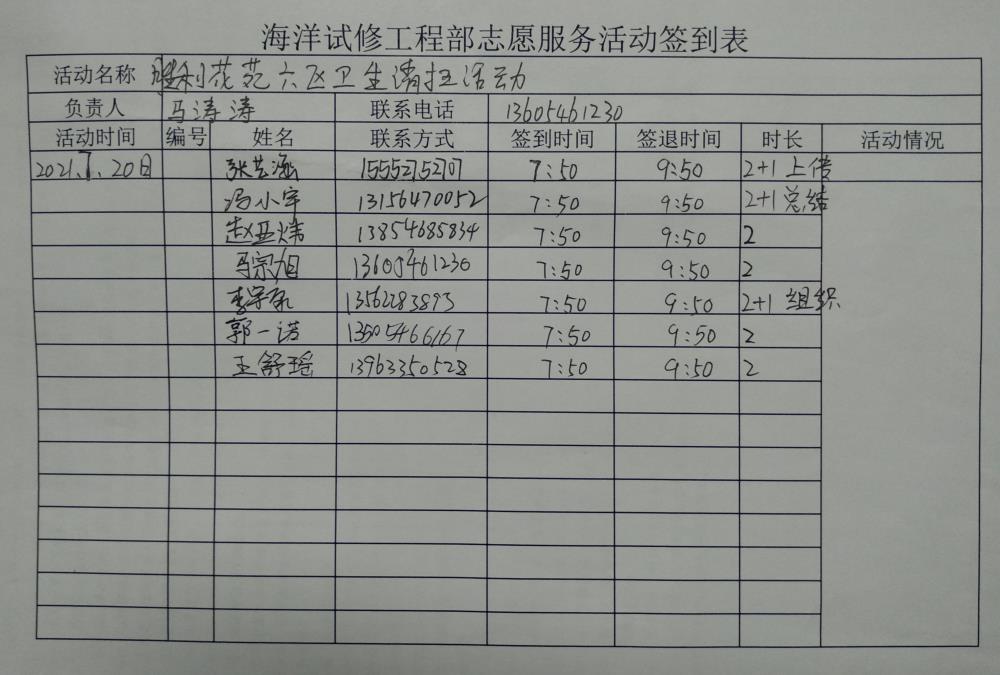 海洋试修工程部志愿服务活动签到表
活动名称 胜利花苑六区卫生清扫活动
负责人 马涛涛 联系电话 13605461230
活动时间 编号 姓名 联系方式 签到时间 签退时间 时长 活动情况
2021.7.20日 张艺涵 15552752707 7:50 9:50 2+1 上传
冯小宇 13156470052 7:50 9:50 2+1 总结
赵亚炜 13854685834 7:50 9:50 2
马宗旭 13605461230 7:50 9:50 2
李 13562283893 7:50 9:50 2+1 组织
郭一诺 13505466167 7:50 9:50 2
王舒瑶 13963350528 7:50 9:50 2